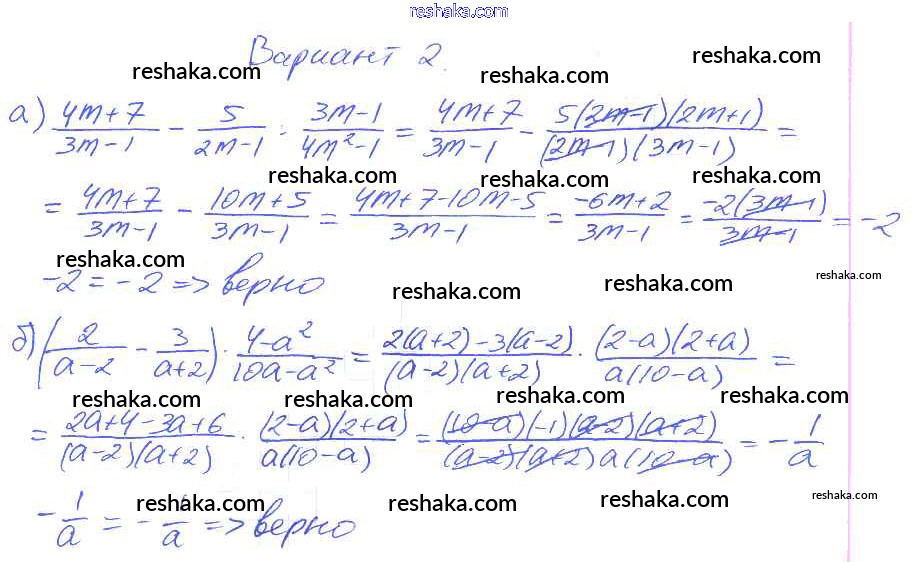 reshaka.com
Вариант 2.
reshaka.com reshaka.com reshaka.com
а) (4m+7)/(3m-1) - 5/(2m-1) : (3m-1)/(4m²-1) = (4m+7)/(3m-1) - 5(2m-1)(2m+1)/(2m-1)(3m-1) =
reshaka.com reshaka.com reshaka.com
= (4m+7)/(3m-1) - (10m+5)/(3m-1) = (4m+7-10m-5)/(3m-1) = (-6m+2)/(3m-1) = -2(3m-1)/(3m-1) = -2
reshaka.com reshaka.com reshaka.com reshaka.com
-2 = -2 => верно
б) (2/(a-2) - 3/(a+2)) · (4-a²)/(10a-a²) = (2(a+2)-3(a-2))/(a-2)(a+2) · (2-a)(2+a)/a(10-a) =
reshaka.com reshaka.com reshaka.com reshaka.com
= (2a+4-3a+6)/(a-2)(a+2) · (2-a)(2+a)/a(10-a) = (10-a)(-1)(a-2)(a+2)/(a-2)(a+2)a(10-a) = -1/a
reshaka.com reshaka.com reshaka.com reshaka.com
-1/a = -1/a => верно